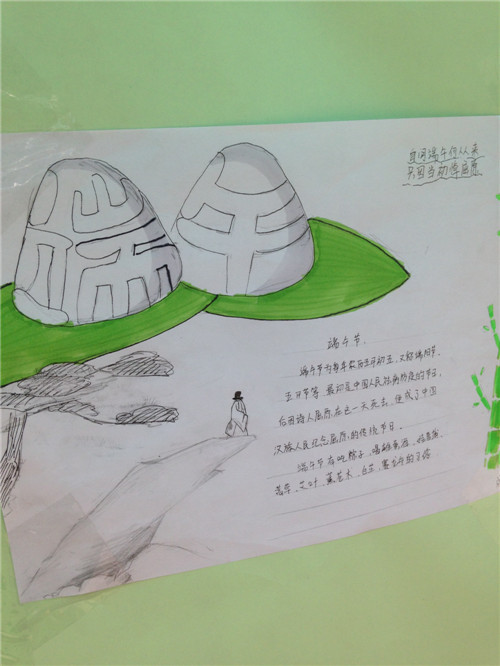 端午
且问端午何从来
只因当初悼屈原
端午节.
端午节为每年农历五月初五,又称端阳节、
五月节等 最初是中国人民祛病防疫的节日,
后因诗人屈原,在这一天死去,便成了中国
汉族人民纪念屈原的传统节日.
端午节有吃粽子、喝雄黄酒、挂菖蒲、
蒿草、艾叶、薰苍术、白芷、赛龙舟的习俗